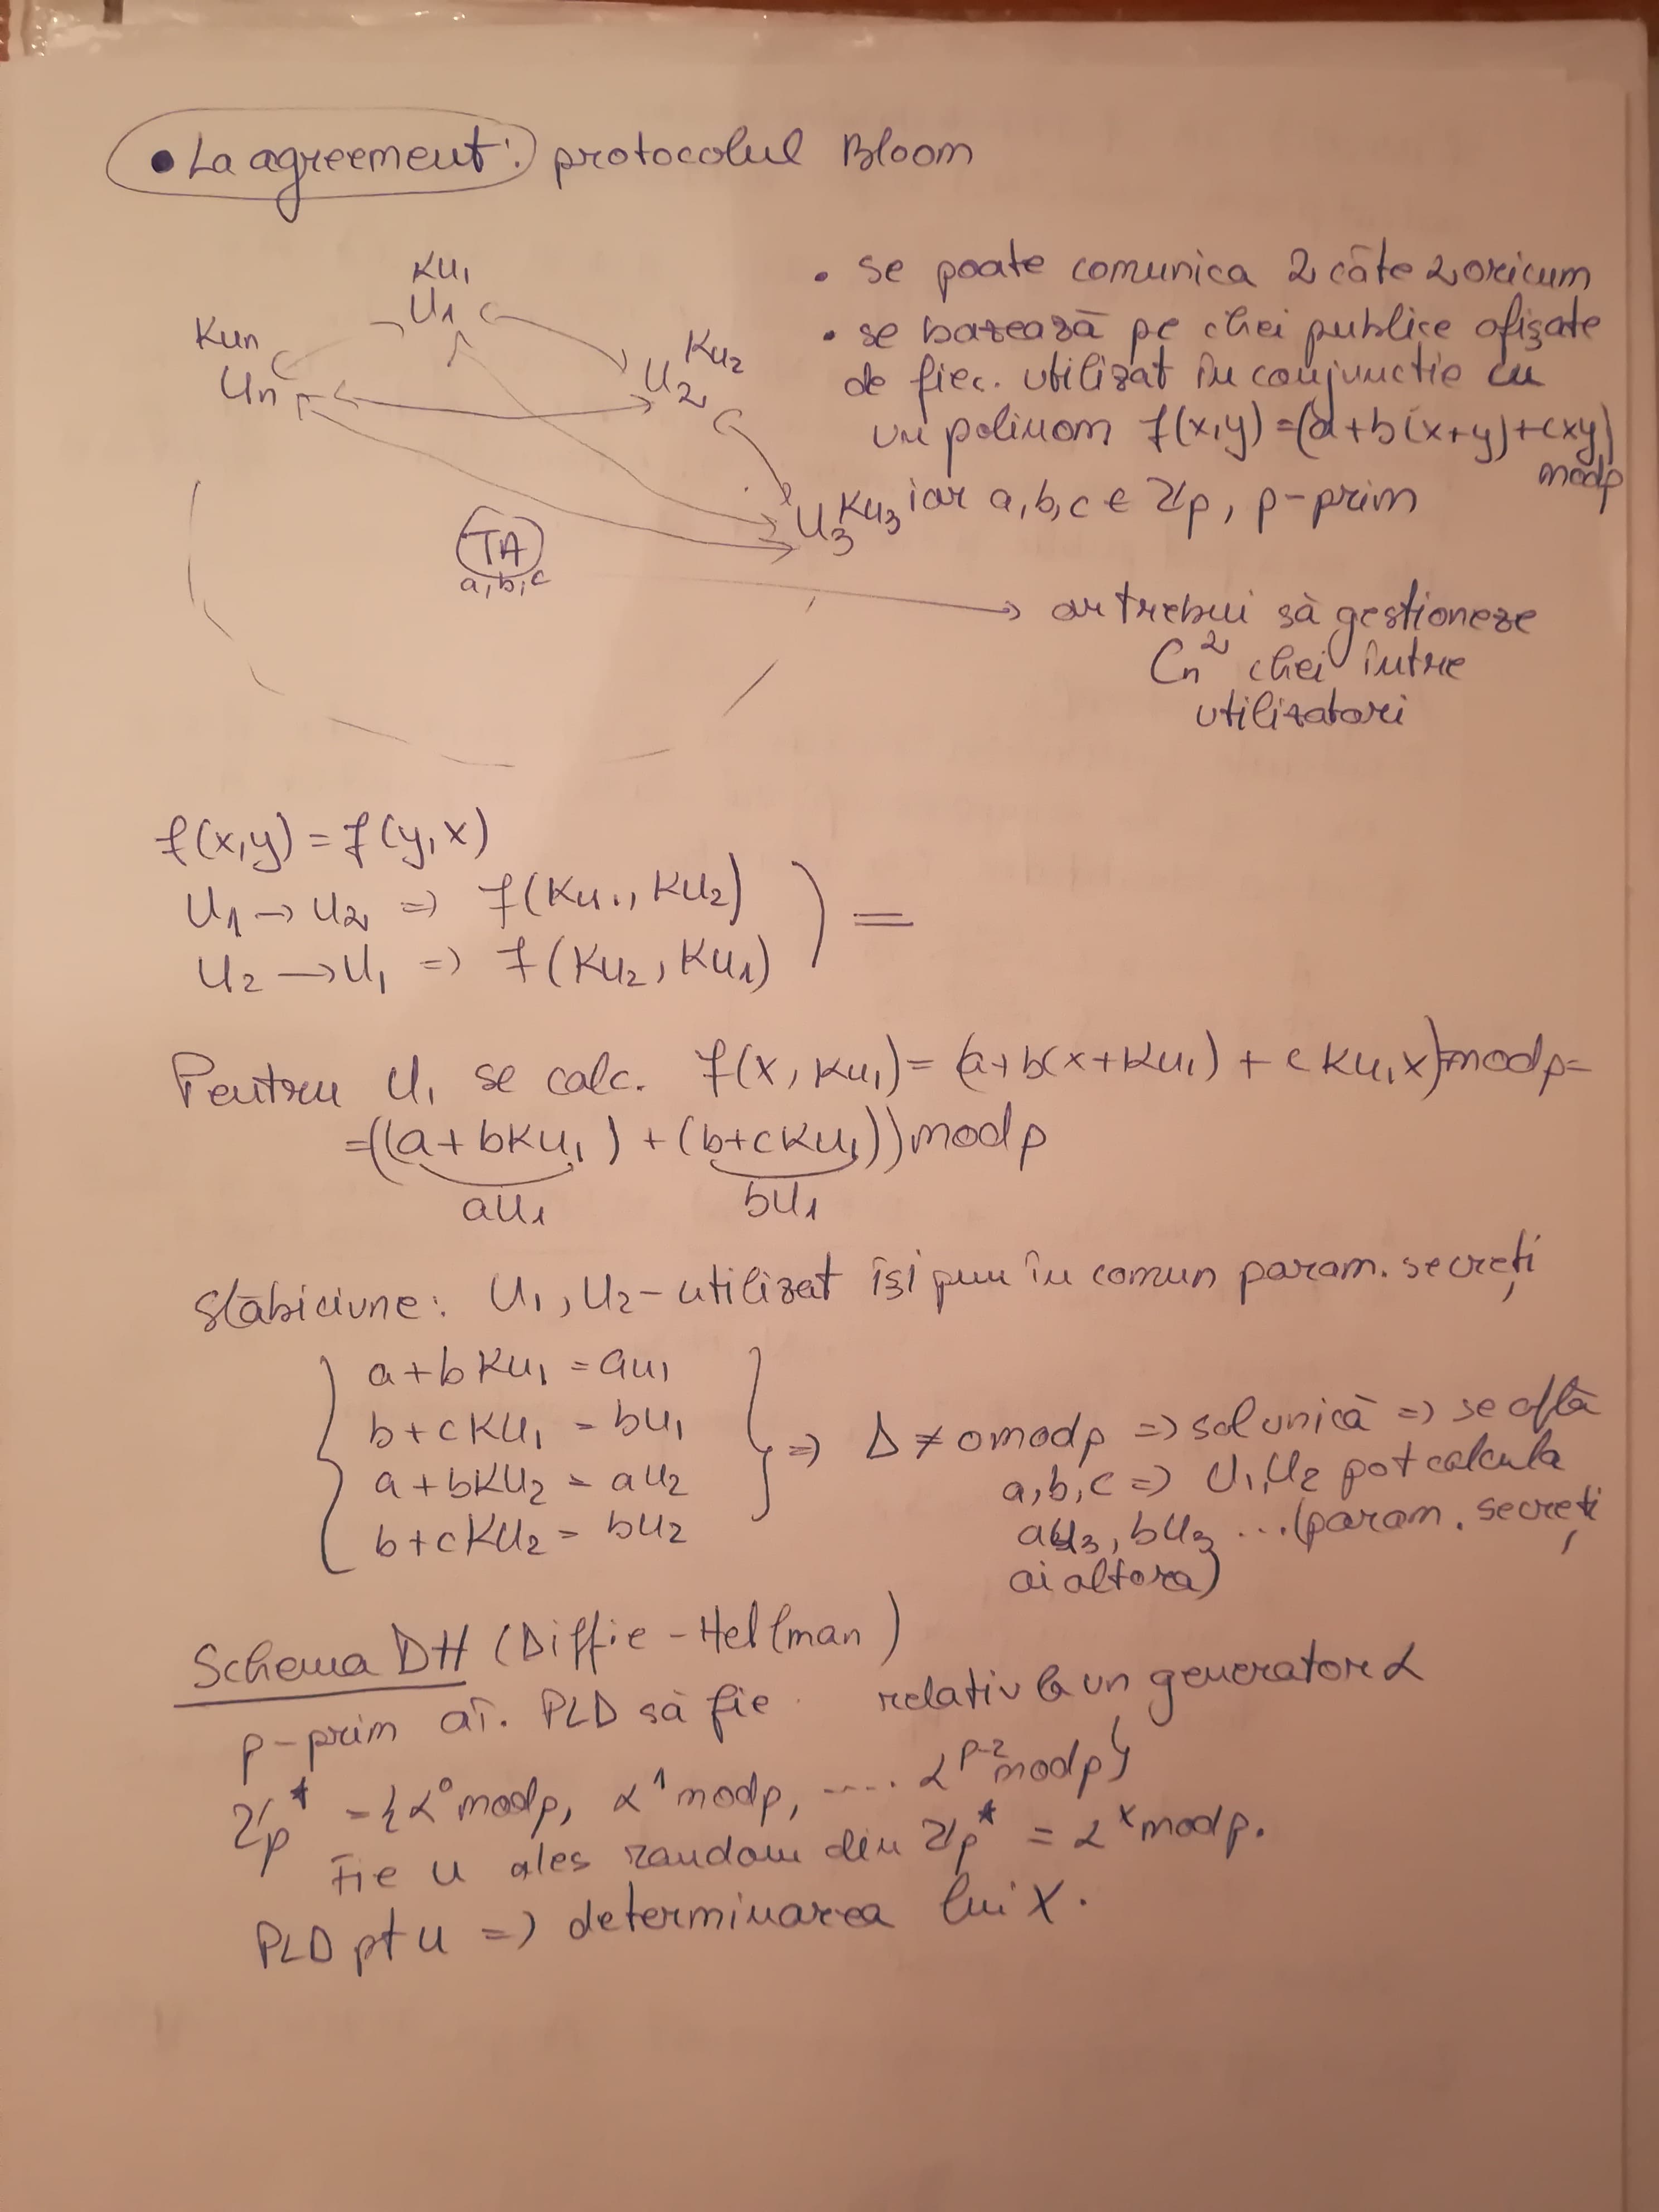 • La agreement: protocolul Bloom
Ku₁
U₁
Kun
Un
Ku₂
U₂
U₃ Ku₃
TA
a,b,c
• se poate comunica 2 câte 2 oricum
• se bazează pe chei publice afișate
de fiec. utilizat în conjunctie cu
un polinom f(x,y)=(a+b(x+y)+cxy)
modp
iar a,b,c ∈ Zp, p-prim
→ ar trebui să gestioneze
Cn² chei între
utilizatori
f(x,y) = f(y,x)
U₁ → U₂ => f(Ku₁, Ku₂)
U₂ → U₁ => f(Ku₂, Ku₁) ) =
Pentru U₁ se calc. f(x, Ku₁) = (a+b(x+Ku₁) + c Ku₁x) modp =
=((a+bKu₁) + (b+cKu₁)) modp
au₁ bu₁
Slăbiciune: U₁, U₂ - utilizat își pun în comun param. secreți
a+bKu₁ = au₁
b+cKu₁ = bu₁
a+bKu₂ = au₂
b+cKu₂ = bu₂
=> Δ ≠ 0 modp => sol unică => se află
a,b,c => U₁,U₂ pot calcula
au₃, bu₃ ...(param. secreți
ai altora)
Schema DH (Diffie-Hellman)
p-prim aî. PLD să fie relativ la un generator α
Zp* = {α⁰modp, α¹modp, ..... α^p-2 modp}
Fie u ales random din Zp* = α^x modp.
PLD pt u => determinarea lui X.